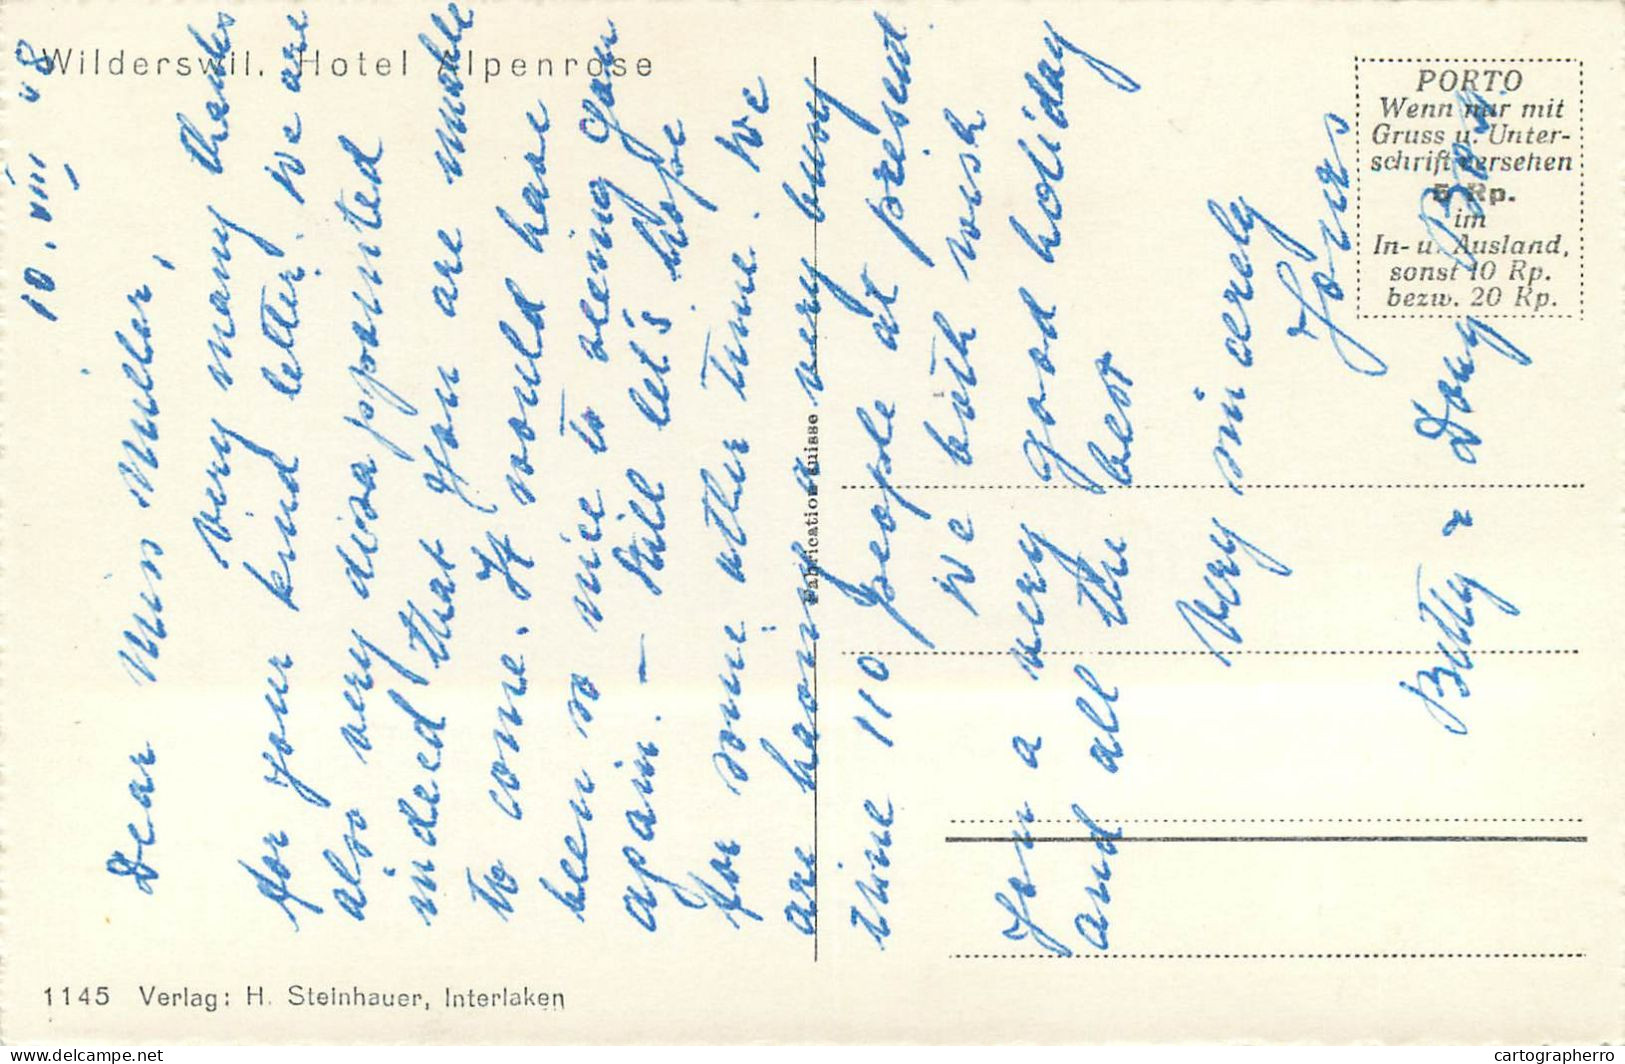 Wilderswil. Hotel Alpenrose
10. VIII 48
Dear Miss Miller,
very many thanks
for your kind letter. We are
also very disappointed
indeed that you are unable
to come. It would have
been so nice to seeing you
again. – Still let's hope
for some other time. We
are having a very busy
time 110 people at present.
We both wish
you a very good holiday
and all the best
Very sincerely
Yours
Betty & Dony
PORTO
Wenn nur mit
Gruss u. Unter-
schrift versehen
5 Rp.
im
In- u. Ausland,
sonst 10 Rp.
bezw. 20 Rp.
Fabrication suisse
1145 Verlag: H. Steinhauer, Interlaken
delcampe.net
cartographerro